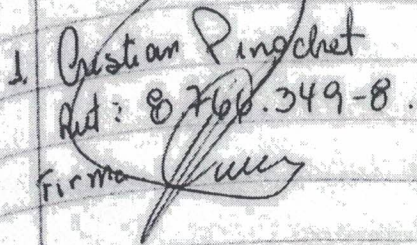 1. Cristian Pinochet
Rut: 8.766.349-8
Firma